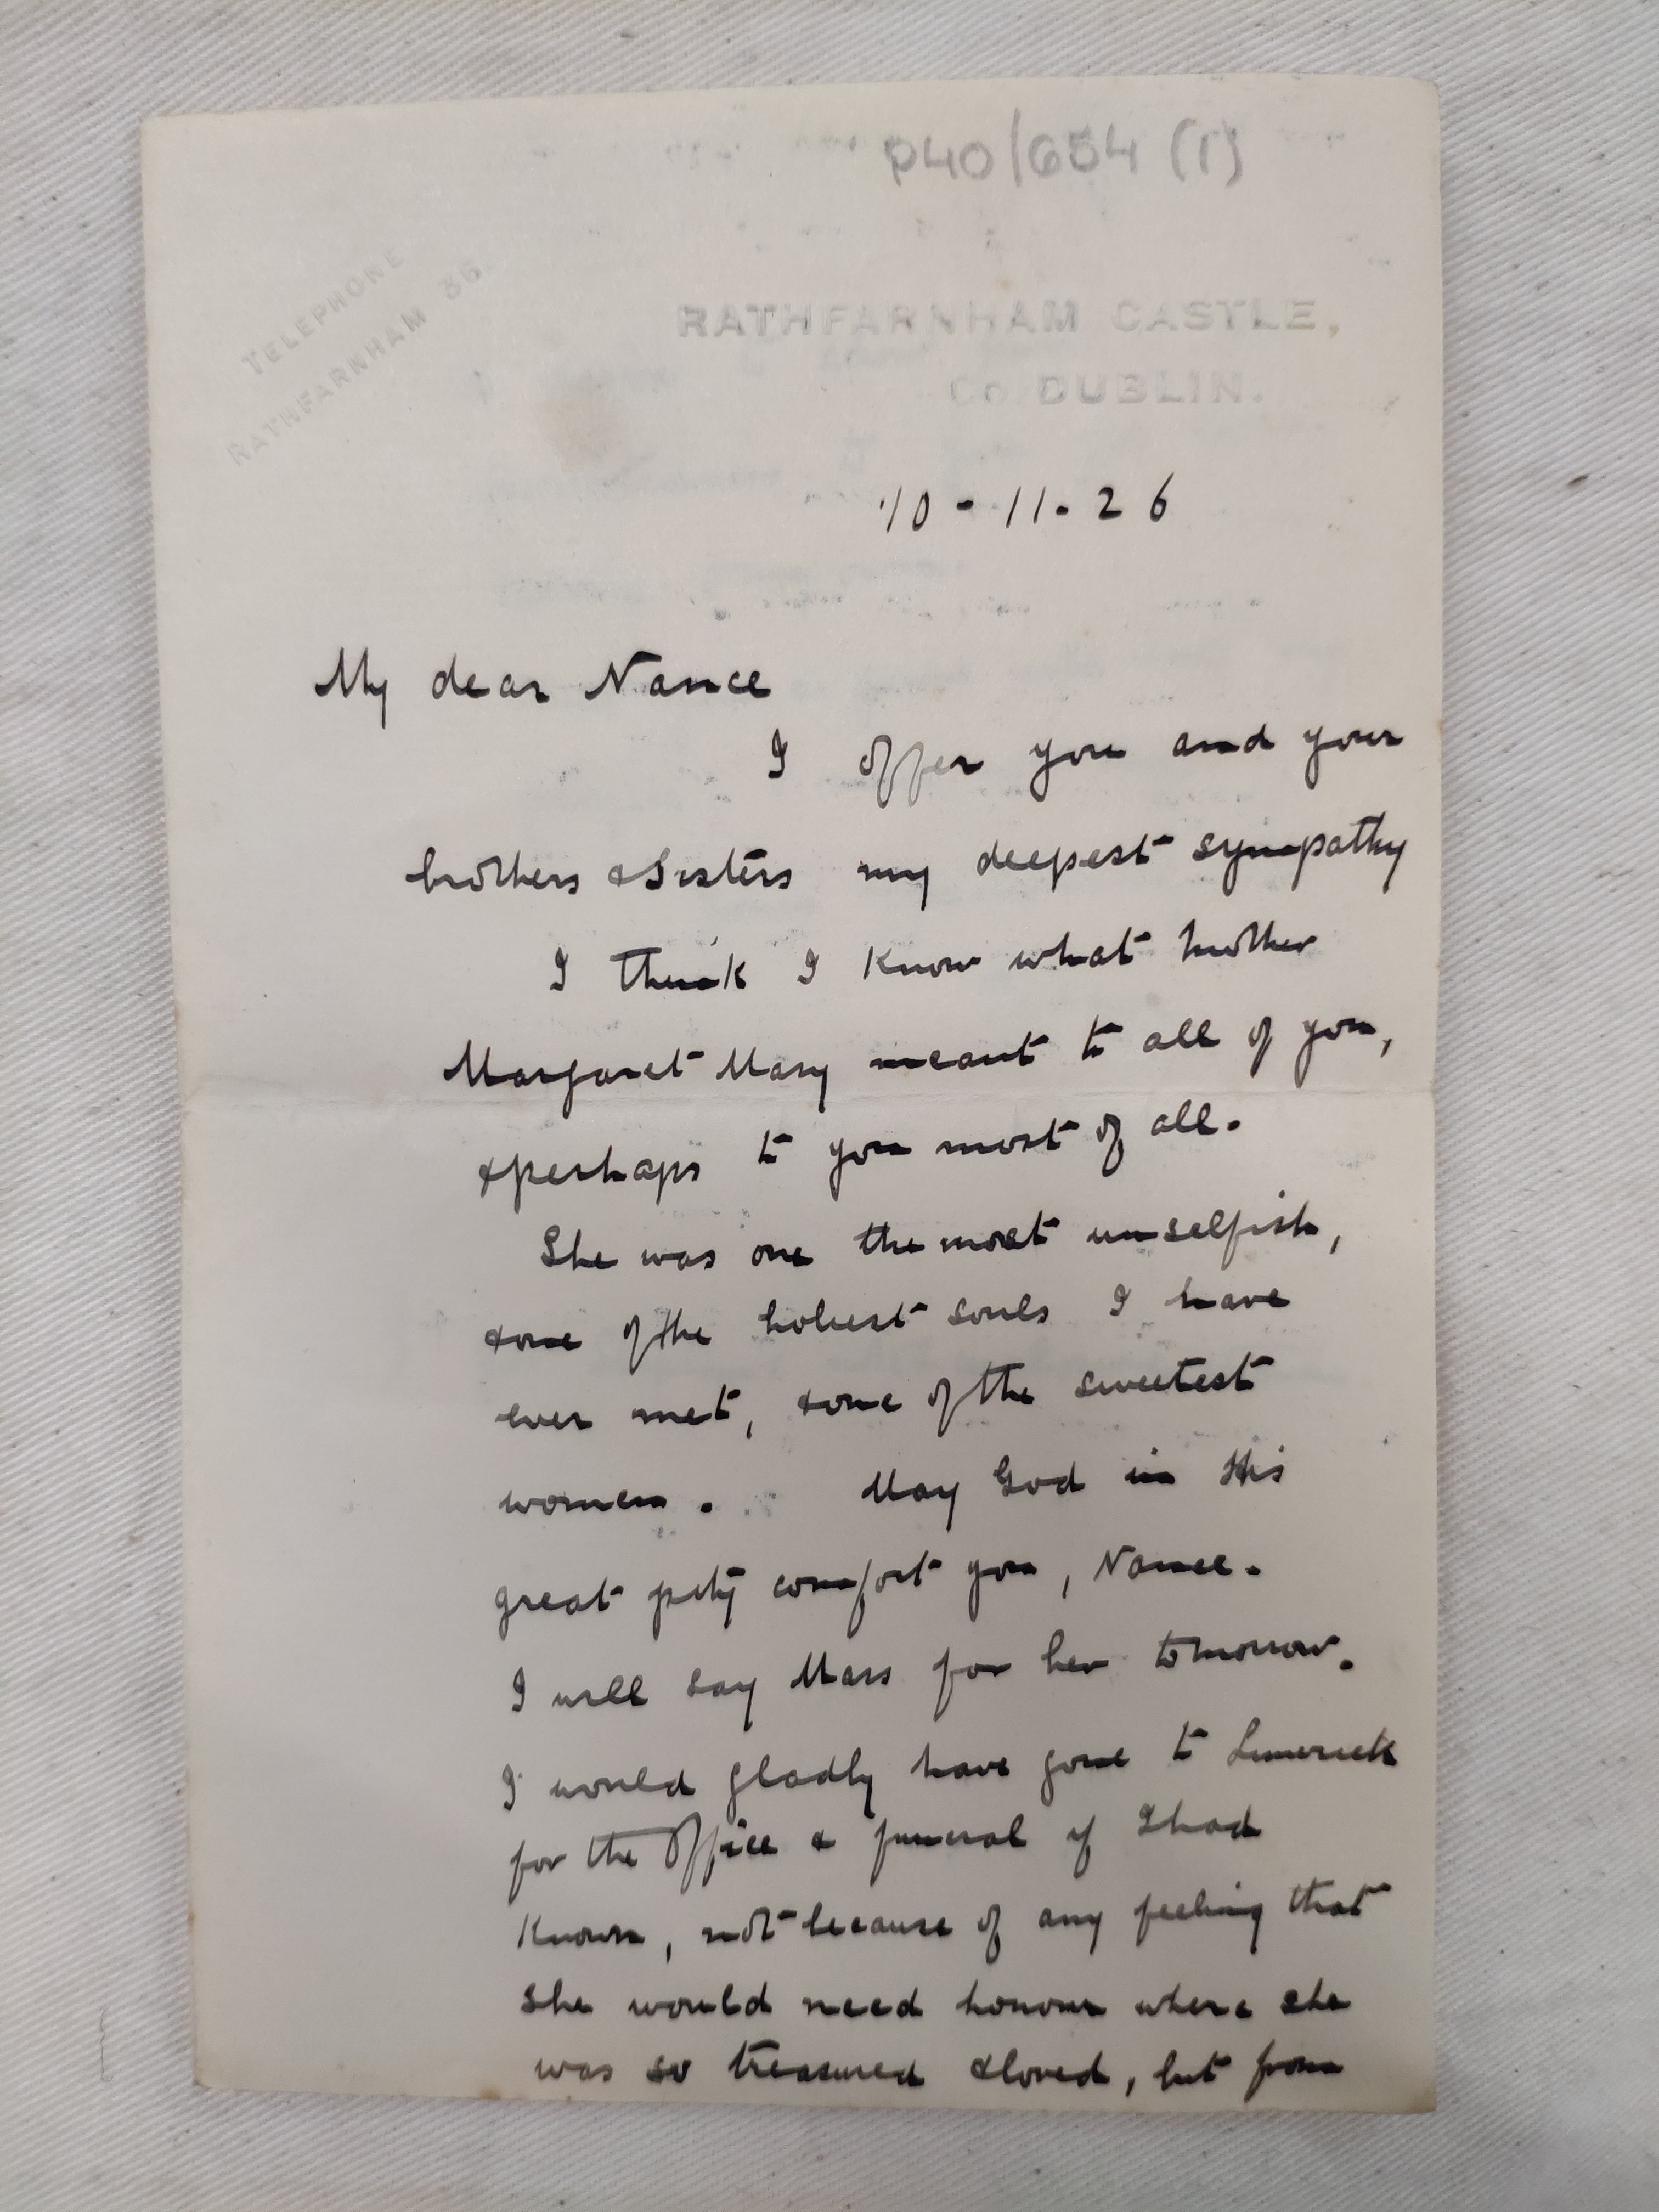 P40/654 (1)
TELEPHONE
RATHFARNHAM 36.
RATHFARNHAM CASTLE,
Co. DUBLIN.
10-11-26
My dear Nance
I offer you and your
brothers & Sisters my deepest sympathy
I think I know what Mother
Margaret Mary meant to all of you,
& perhaps to you most of all.
She was one the most unselfish,
& one of the holiest souls I have
ever met, & one of the sweetest
women. May God in His
great pity comfort you, Nance.
I will say Mass for her tomorrow.
I would gladly have gone to Limerick
for the Office & funeral if I had
known, not because of any feeling that
she would need honour where she
was so treasured & loved, but from